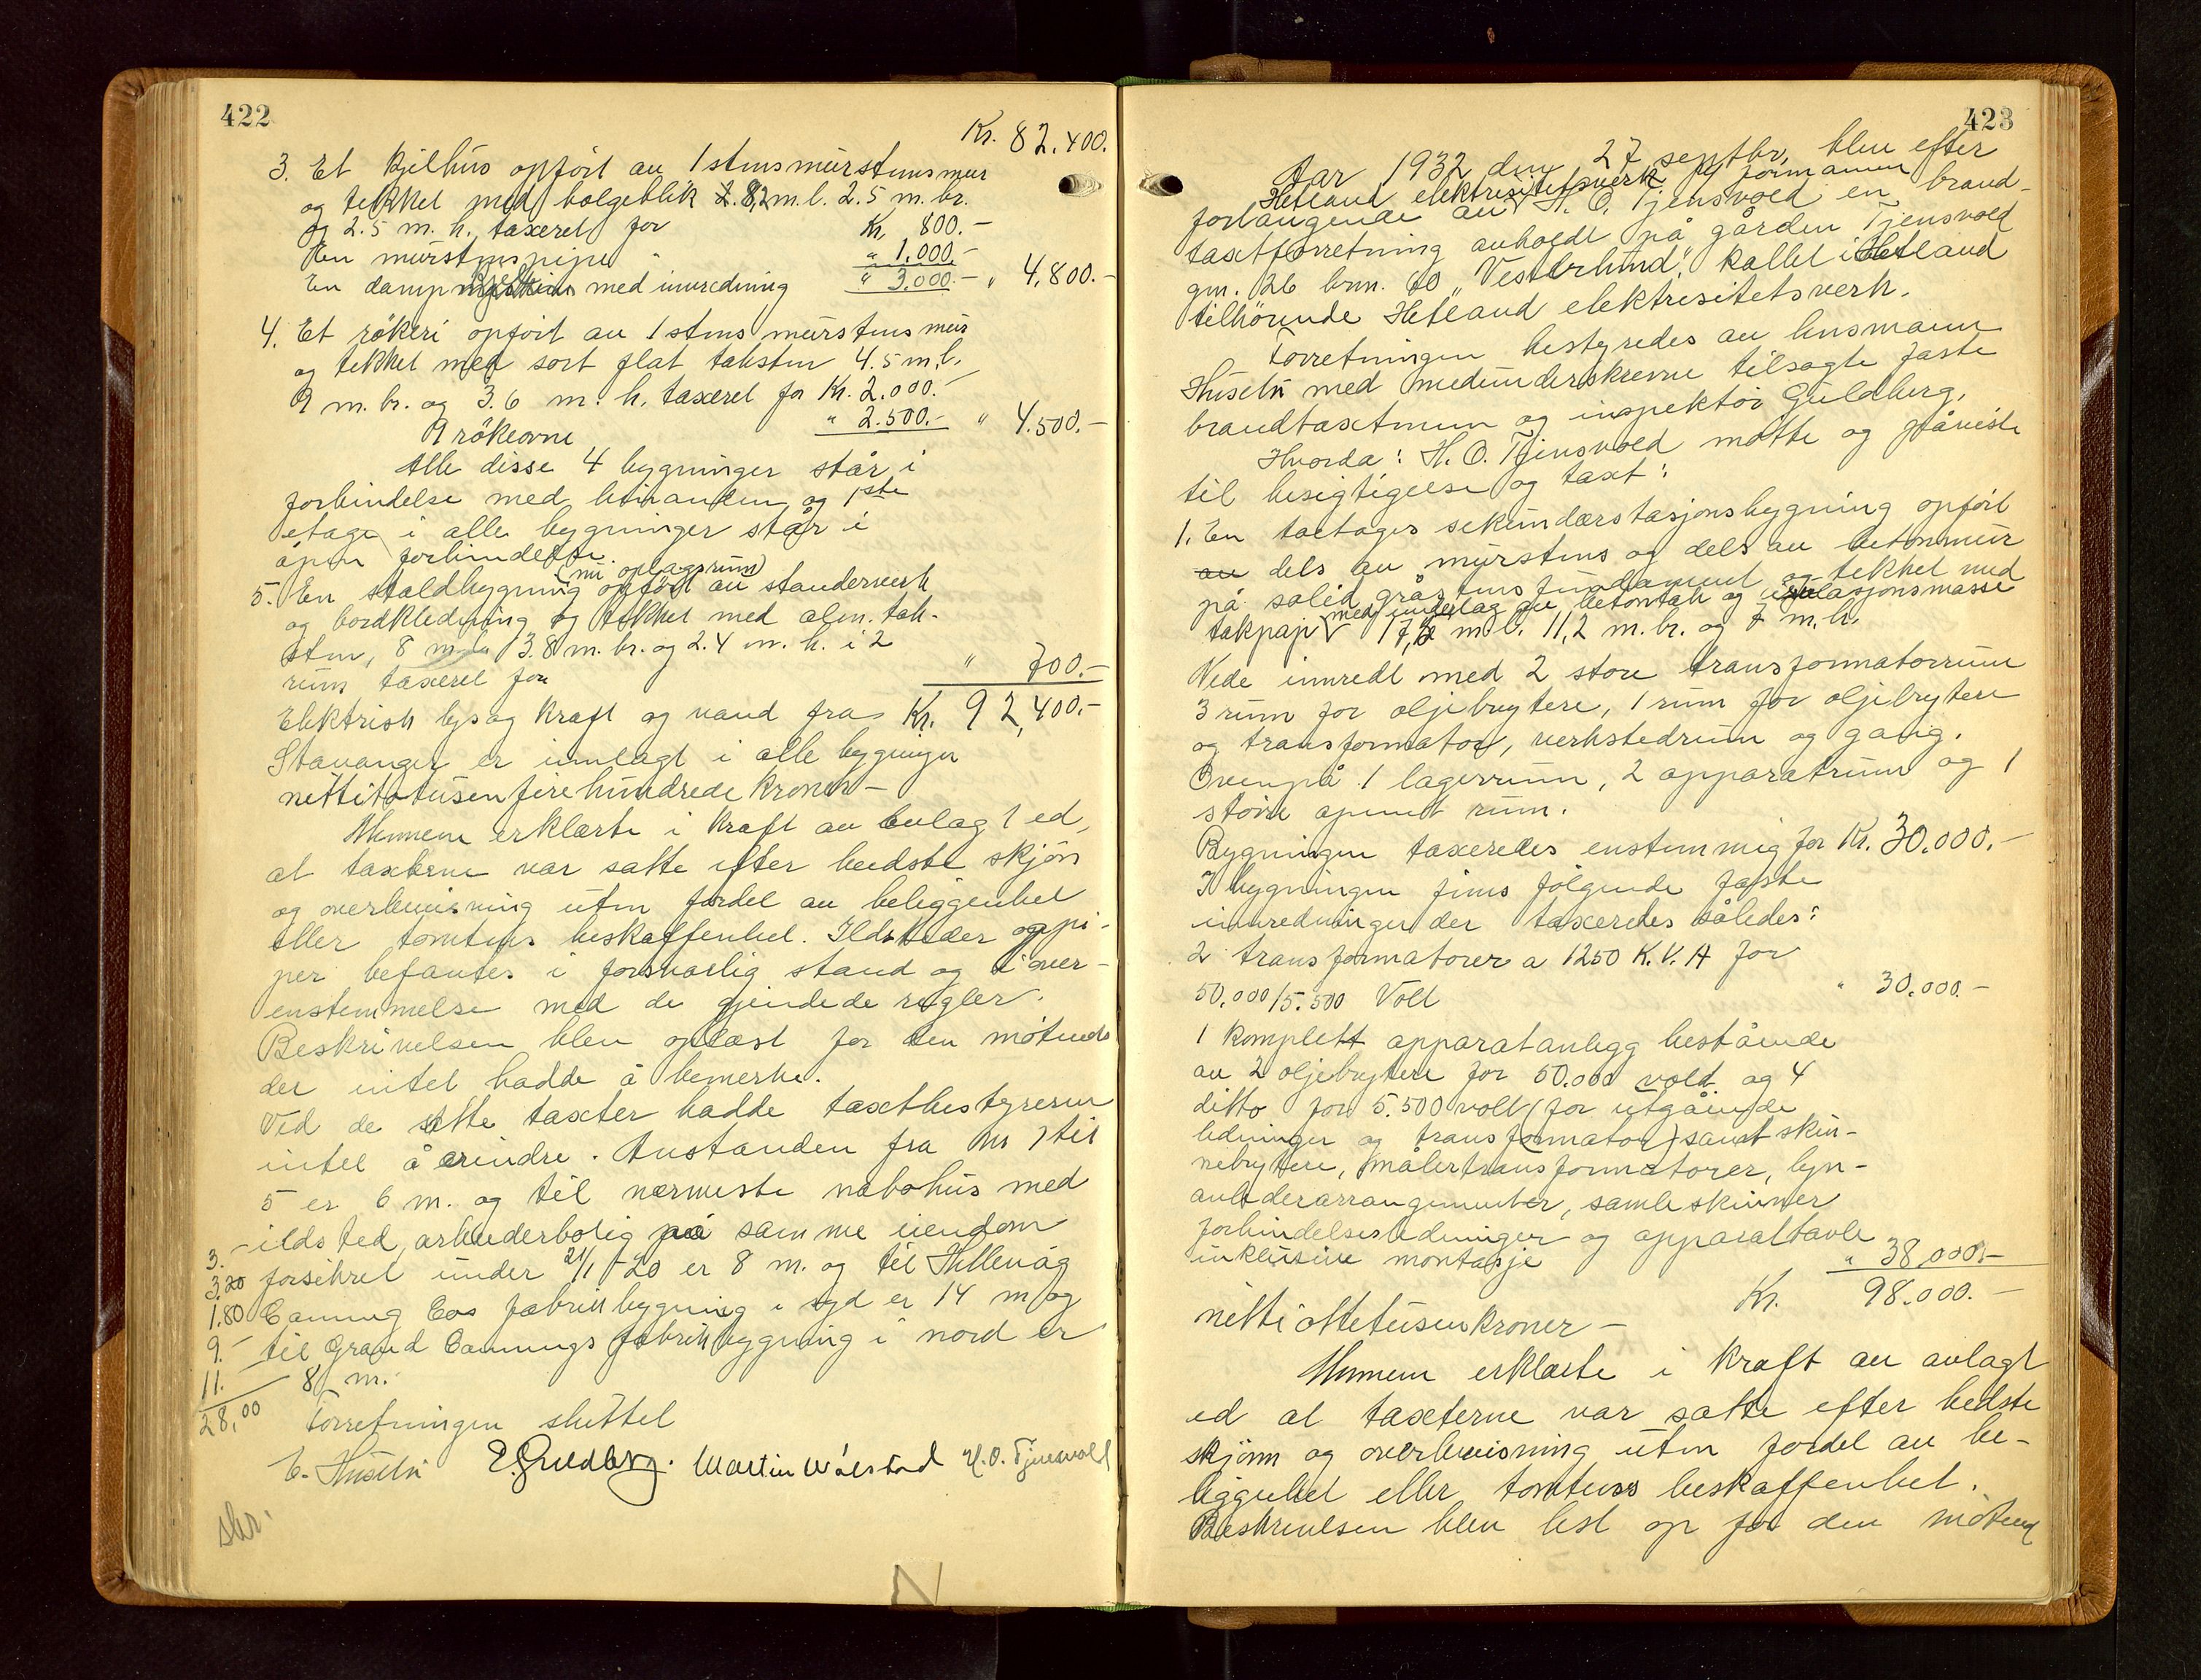 422
Kr. 82.400.
3. Et kjelhus opført av 1 stens murstensmur
og tekket med bølgeblik 8,2 m. l. 2.5 m. br.
og 2.5 m. h. taxeret for Kr. 800.-
En murstenspipe " " 1.000.-
En dampkjel med innredning " 3.000.- " 4.800.-
4. Et røkeri opført av 1 stens murstens mur
og tekket med sort flat taksten 4.5 m. l.
9 m. br. og 3.6 m. h. taxeret for Kr. 2.000.-
9 røkeovne " 2.500.- " 4.500.-
Alle disse 4 bygninger står i
forbindelse med hinanden og 1ste
etage i alle bygninger står i
åpen forbindelse.
(nu oplagsrum)
5. En staldbygning opført av standerverk
og bordkledning og tekket med alm. tak-
sten, 8 m. l. 3.8 m. br. og 2.4 m. h. i 2
rum taxeret for " 700.-
Elektrisk lys og kraft og vand fra Kr. 92,400.-
Stavanger er innlagt i alle bygninger
nettitotusenfirehundrede kroner -
Mennene erklærte i kraft av avlagt ed,
at taxterne var satte efter bedste skjøn
og overbevisning uten fordel av beliggenhet
eller tomtens beskaffenhet. Ildsteder og pi-
per befantes i forsvarlig stand og i over-
enstemmelse med de gjeldede regler.
Beskrivelsen blev oplæst for den møtende
der intet hadde å bemerke.
Ved de satte taxter hadde taxtbestyreren
intet å erindre. Avstanden fra nr 1 til
5 er 6 m. og til nærmeste nabohus med
ildsted, arbeiderbolig på samme eiendom
forsikret under 21/1 -20 er 8 m. og til Hillevåg
Canning Cos fabrikbygning i syd er 14 m. og
til Grand Cannings fabrikbygning i nord er
8 m.
3.-
3.20
1.80
9.-
11.
28,00
Forretningen sluttet
E. Husebø E. Guldberg. Martin Wålstad H. O. Tjensvold
skr.
423
Aar 1932 den 27 septbr. blev efter
Hetland elektrisitetsverk ved formannen
forlangende av H. O. Tjensvold en brand-
taxtforretning avholdt på gården Tjensvold
gn. 26 brn. 60 "Vesterlund" kallet i Hetland
tilhørende Hetland elektrisitetsverk.
Forretningen bestyredes av lensmann
Husebø med medunderskrevne tilsagte faste
brandtaxtmenn og inspektør Guldberg.
Hvorda: H. O. Tjensvold møtte og påviste
til besigtigelse og taxt:
1. En toetages sekundærstasjonsbygning opført
av dels av murstens og dels av betonmur
på solid gråstens fundament og tekket med
med underlag av betontak og isolasjonsmasse
takpap 17,2 m. l. 11,2 m. br. og 7 m. h.
Nede innredt med 2 store transformatorrum
3 rum for oljebrytere, 1 rum for oljebrytere
og transformator, verkstedrum og gang.
Ovenpå 1 lagerrum, 2 apparatrum og 1
større åpent rum.
Bygningen taxeredes enstemmig for Kr. 30.000.-
I bygningen fins følgende faste
innredninger der taxeredes således:
2 transformatorer a 1250 K.V.A for
50.000/5.500 Volt " 30.000.-
1 komplett apparatanlegg bestående
av 2 oljebrytere for 50.000 volt og 4
ditto for 5.500 volt (for utgående
ledninger og transformator) samt skin-
nebrytere, målertransformatorer, lyn-
avlederarrangementer, samleskinner
forbindelsesledninger og apparattavle
inklusive montasje " 38.000.-
Kr. 98.000.-
nettiåttetusen kroner -
Mennene erklærte i kraft av avlagt
ed at taxterne var satte efter bedste
skjønn og overbevisning uten fordel av be-
liggenhet eller tomtens beskaffenhet.
Beskrivelsen blev lest op for den møtende